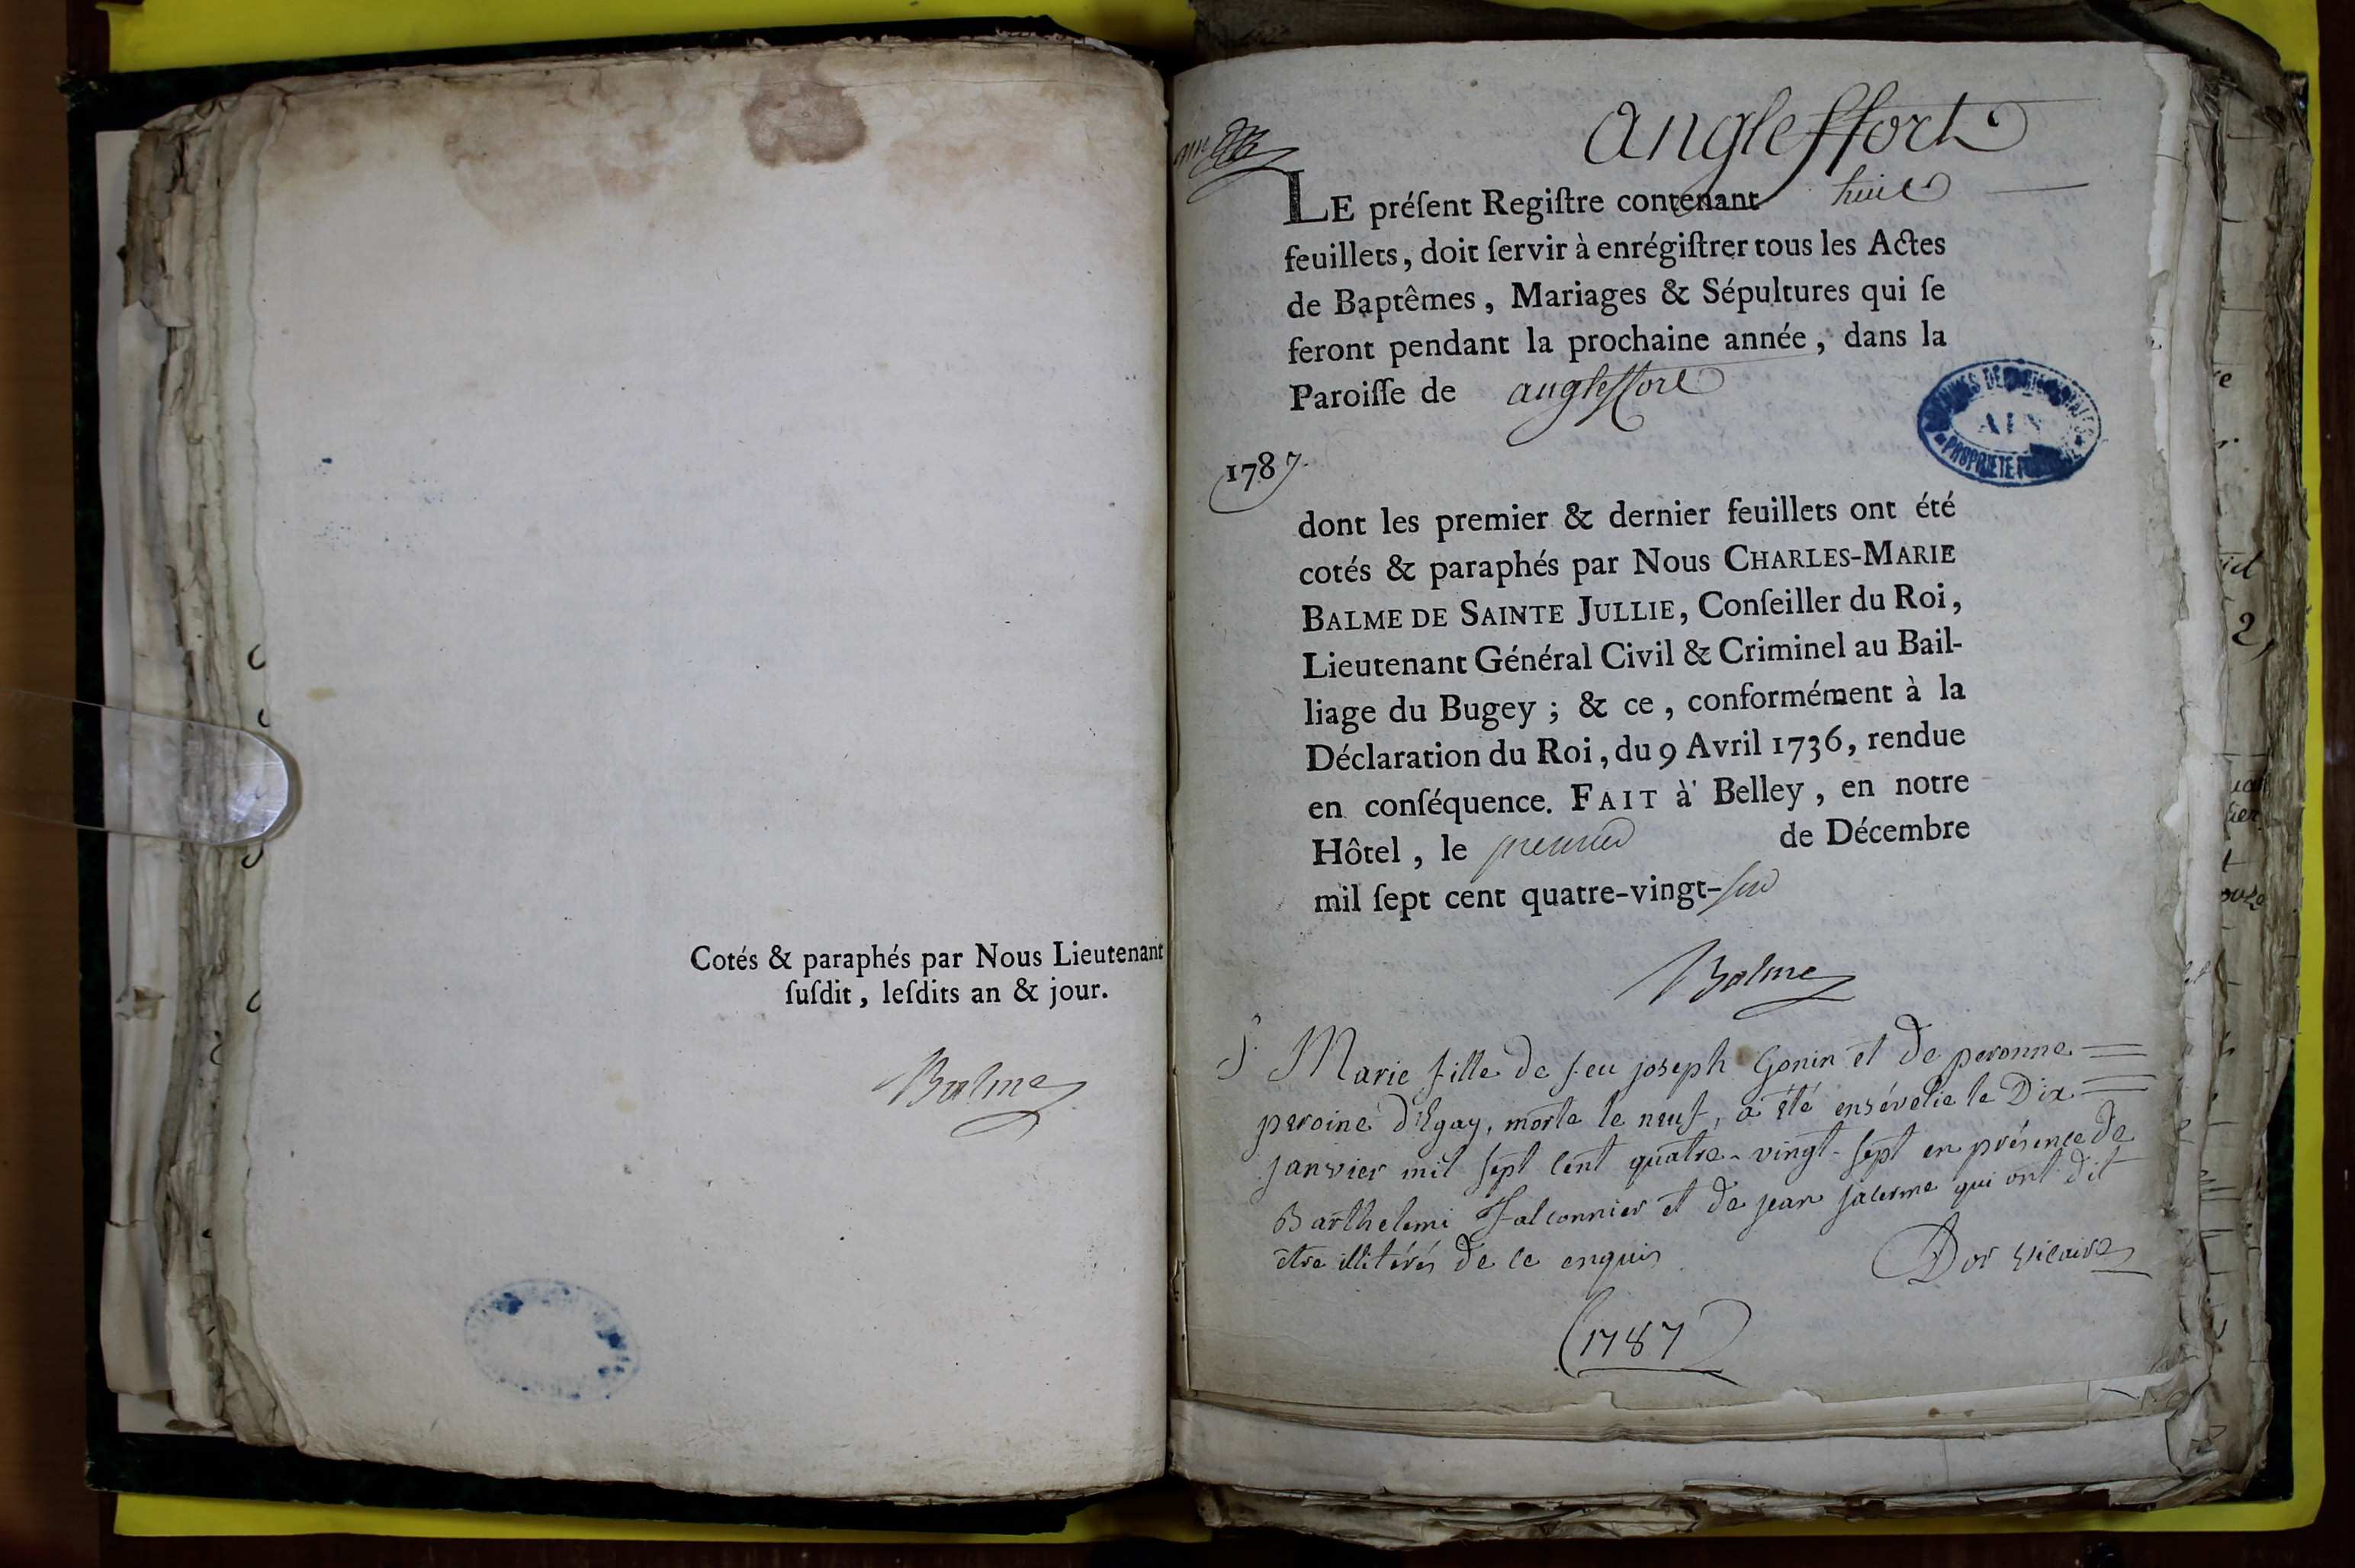 Cotés & paraphés par Nous Lieutenant
ſuſdit, leſdits an & jour.
Balme
angleffort
LE préſent Regiſtre contenant huit
feuillets, doit ſervir à enrégiſtrer tous les Actes
de Baptêmes, Mariages & Sépultures qui ſe
feront pendant la prochaine année, dans la
Paroiſſe de angleffort
1787.
dont les premier & dernier feuillets ont été
cotés & paraphés par Nous CHARLES-MARIE
BALME DE SAINTE JULLIE, Conſeiller du Roi,
Lieutenant Général Civil & Criminel au Bail-
liage du Bugey ; & ce, conformément à la
Déclaration du Roi, du 9 Avril 1736, rendue
en conſéquence. FAIT à Belley, en notre
Hôtel, le premier de Décembre
mil ſept cent quatre-vingt-six
Balme
S. Marie fille de feu joseph Gonin et de peronne
peroine d'Egay, morte le neuf, a été ensévelie le Dix
janvier mil sept cent quatre-vingt-sept en présence de
Barthelemi Falconnier et de jean jacerme qui ont dit
etre illitérés de ce enquis
Dor vicaire
(1787)
ARCHIVES DÉPARTEMENTALES
AIN
PROPRIÉTÉ